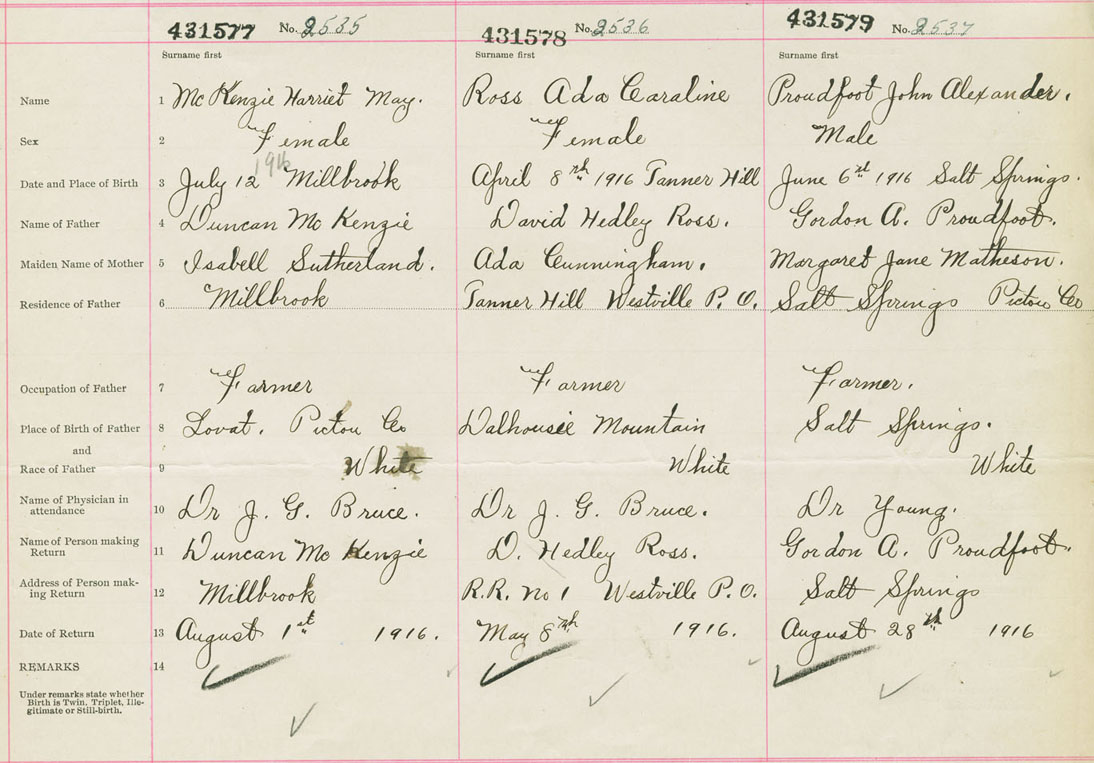 431577 No. 2535 431578 No. 2536 431579 No. 2537
Surname first Surname first Surname first
Name 1 McKenzie Harriet May. Ross Ada Caraline Proudfoot John Alexander.
Sex 2 Female Female Male
1916
Date and Place of Birth 3 July 12 Millbrook April 8th 1916 Tanner Hill June 6th 1916 Salt Springs.
Name of Father 4 Duncan McKenzie David Hedley Ross. Gordon A. Proudfoot.
Maiden Name of Mother 5 Isabell Sutherland. Ada Cunningham. Margaret Jane Matheson.
Residence of Father 6 Millbrook Tanner Hill Westville P. O. Salt Springs Pictou Co
Occupation of Father 7 Farmer Farmer Farmer.
Place of Birth of Father 8 Lovat. Pictou Co Dalhousie Mountain Salt Springs.
and
Race of Father 9 White White White
Name of Physician in
attendance 10 Dr J. G. Bruce. Dr J. G. Bruce. Dr Young.
Name of Person making
Return 11 Duncan McKenzie D. Hedley Ross. Gordon A. Proudfoot.
Address of Person mak-
ing Return 12 Millbrook R.R. no 1 Westville P. O. Salt Springs
Date of Return 13 August 1st 1916. May 8th 1916. August 28th 1916
REMARKS 14
Under remarks state whether
Birth is Twin, Triplet, Ille-
gitimate or Still-birth.